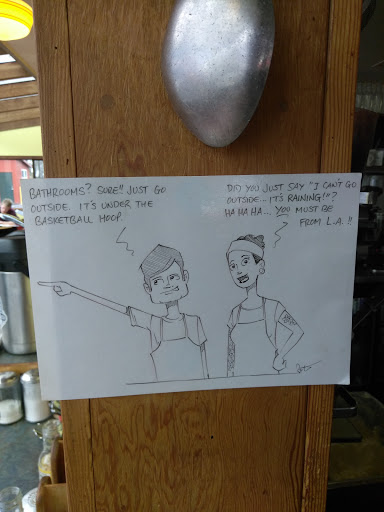 BATHROOMS? SURE!! JUST GO
OUTSIDE. IT'S UNDER THE
BASKETBALL HOOP.
DID YOU JUST SAY "I CAN'T GO
OUTSIDE... IT'S RAINING!"?
HA HA HA... YOU MUST BE
FROM L.A.!!